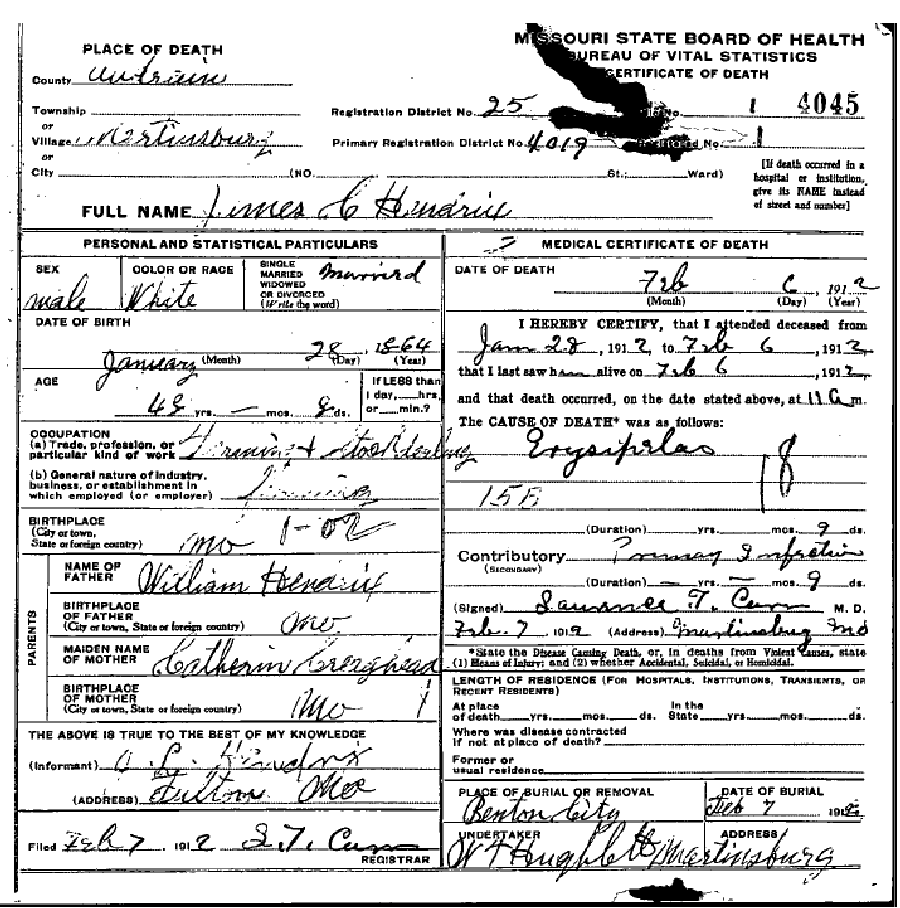 MISSOURI STATE BOARD OF HEALTH
BUREAU OF VITAL STATISTICS
CERTIFICATE OF DEATH
PLACE OF DEATH
County Audrain
Township
or
Village Martinsburg
or
City (NO. St.; Ward)
Registration District No. 25 No. 1 4045
Primary Registration District No. 4019 Registered No. 1
[If death occurred in a
hospital or institution,
give its NAME instead
of street and number]
FULL NAME James C Hendrix
PERSONAL AND STATISTICAL PARTICULARS
SEX
male
COLOR OR RACE
White
SINGLE
MARRIED
WIDOWED
OR DIVORCED
(Write the word)
Married
DATE OF BIRTH
January 28 1864
(Month) (Day) (Year)
AGE
48 yrs. — mos. 8 ds.
IF LESS than
1 day, hrs.
or min.?
OCCUPATION
(a) Trade, profession, or
particular kind of work Farming & Stockdealing
(b) General nature of industry,
business, or establishment in
which employed (or employer) Farming
BIRTHPLACE
(City or town,
State or foreign country) Mo 1-02
PARENTS
NAME OF
FATHER William Hendrix
BIRTHPLACE
OF FATHER
(City or town, State or foreign country) Mo
MAIDEN NAME
OF MOTHER Catherin Creaghead
BIRTHPLACE
OF MOTHER
(City or town, State or foreign country) Mo 1
THE ABOVE IS TRUE TO THE BEST OF MY KNOWLEDGE
(Informant) Hendrix
(ADDRESS) Fulton Mo
Filed Feb 7 1912 Curn
REGISTRAR
MEDICAL CERTIFICATE OF DEATH
DATE OF DEATH
Feb 6 1912
(Month) (Day) (Year)
I HEREBY CERTIFY, that I attended deceased from
Jan 28, 1912, to Feb 6, 1912,
that I last saw him alive on Feb 6, 1912,
and that death occurred, on the date stated above, at 11 a m.
The CAUSE OF DEATH* was as follows:
Erysipelas 18
15B
(Duration) yrs. mos. 9 ds.
Contributory Infection
(SECONDARY)
(Duration) — yrs. — mos. 9 ds.
(Signed) Laurence T. Curn M. D.
Feb. 7 1912 (Address) Martinsburg Mo
*State the Disease Causing Death, or, in deaths from Violent Causes, state
(1) Means of Injury; and (2) whether Accidental, Suicidal, or Homicidal.
LENGTH OF RESIDENCE (FOR HOSPITALS, INSTITUTIONS, TRANSIENTS, OR
RECENT RESIDENTS)
At place In the
of death yrs. mos. ds. State yrs. mos. ds.
Where was disease contracted
if not at place of death?
Former or
usual residence
PLACE OF BURIAL OR REMOVAL
Benton City
DATE OF BURIAL
Feb 7 1912
UNDERTAKER
ADDRESS
Martinsburg